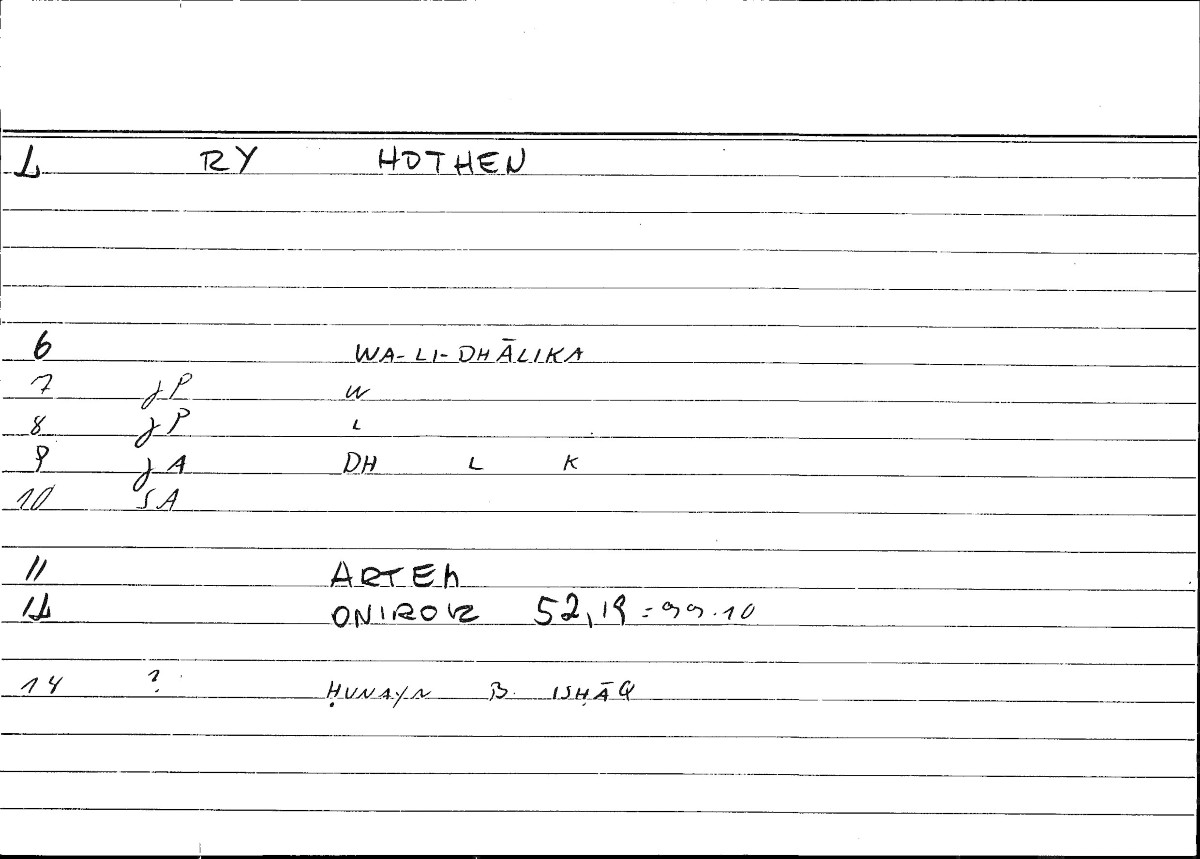 1 RY HOTHEN
6 WA-LI-DHĀLIKA
7 JP W
8 JP L
9 JA DH L K
10 SA
11 ARTEM
12 ONIROK 52,19 = 99.10
14 ? ḤUNAYN B. ISḤĀQ